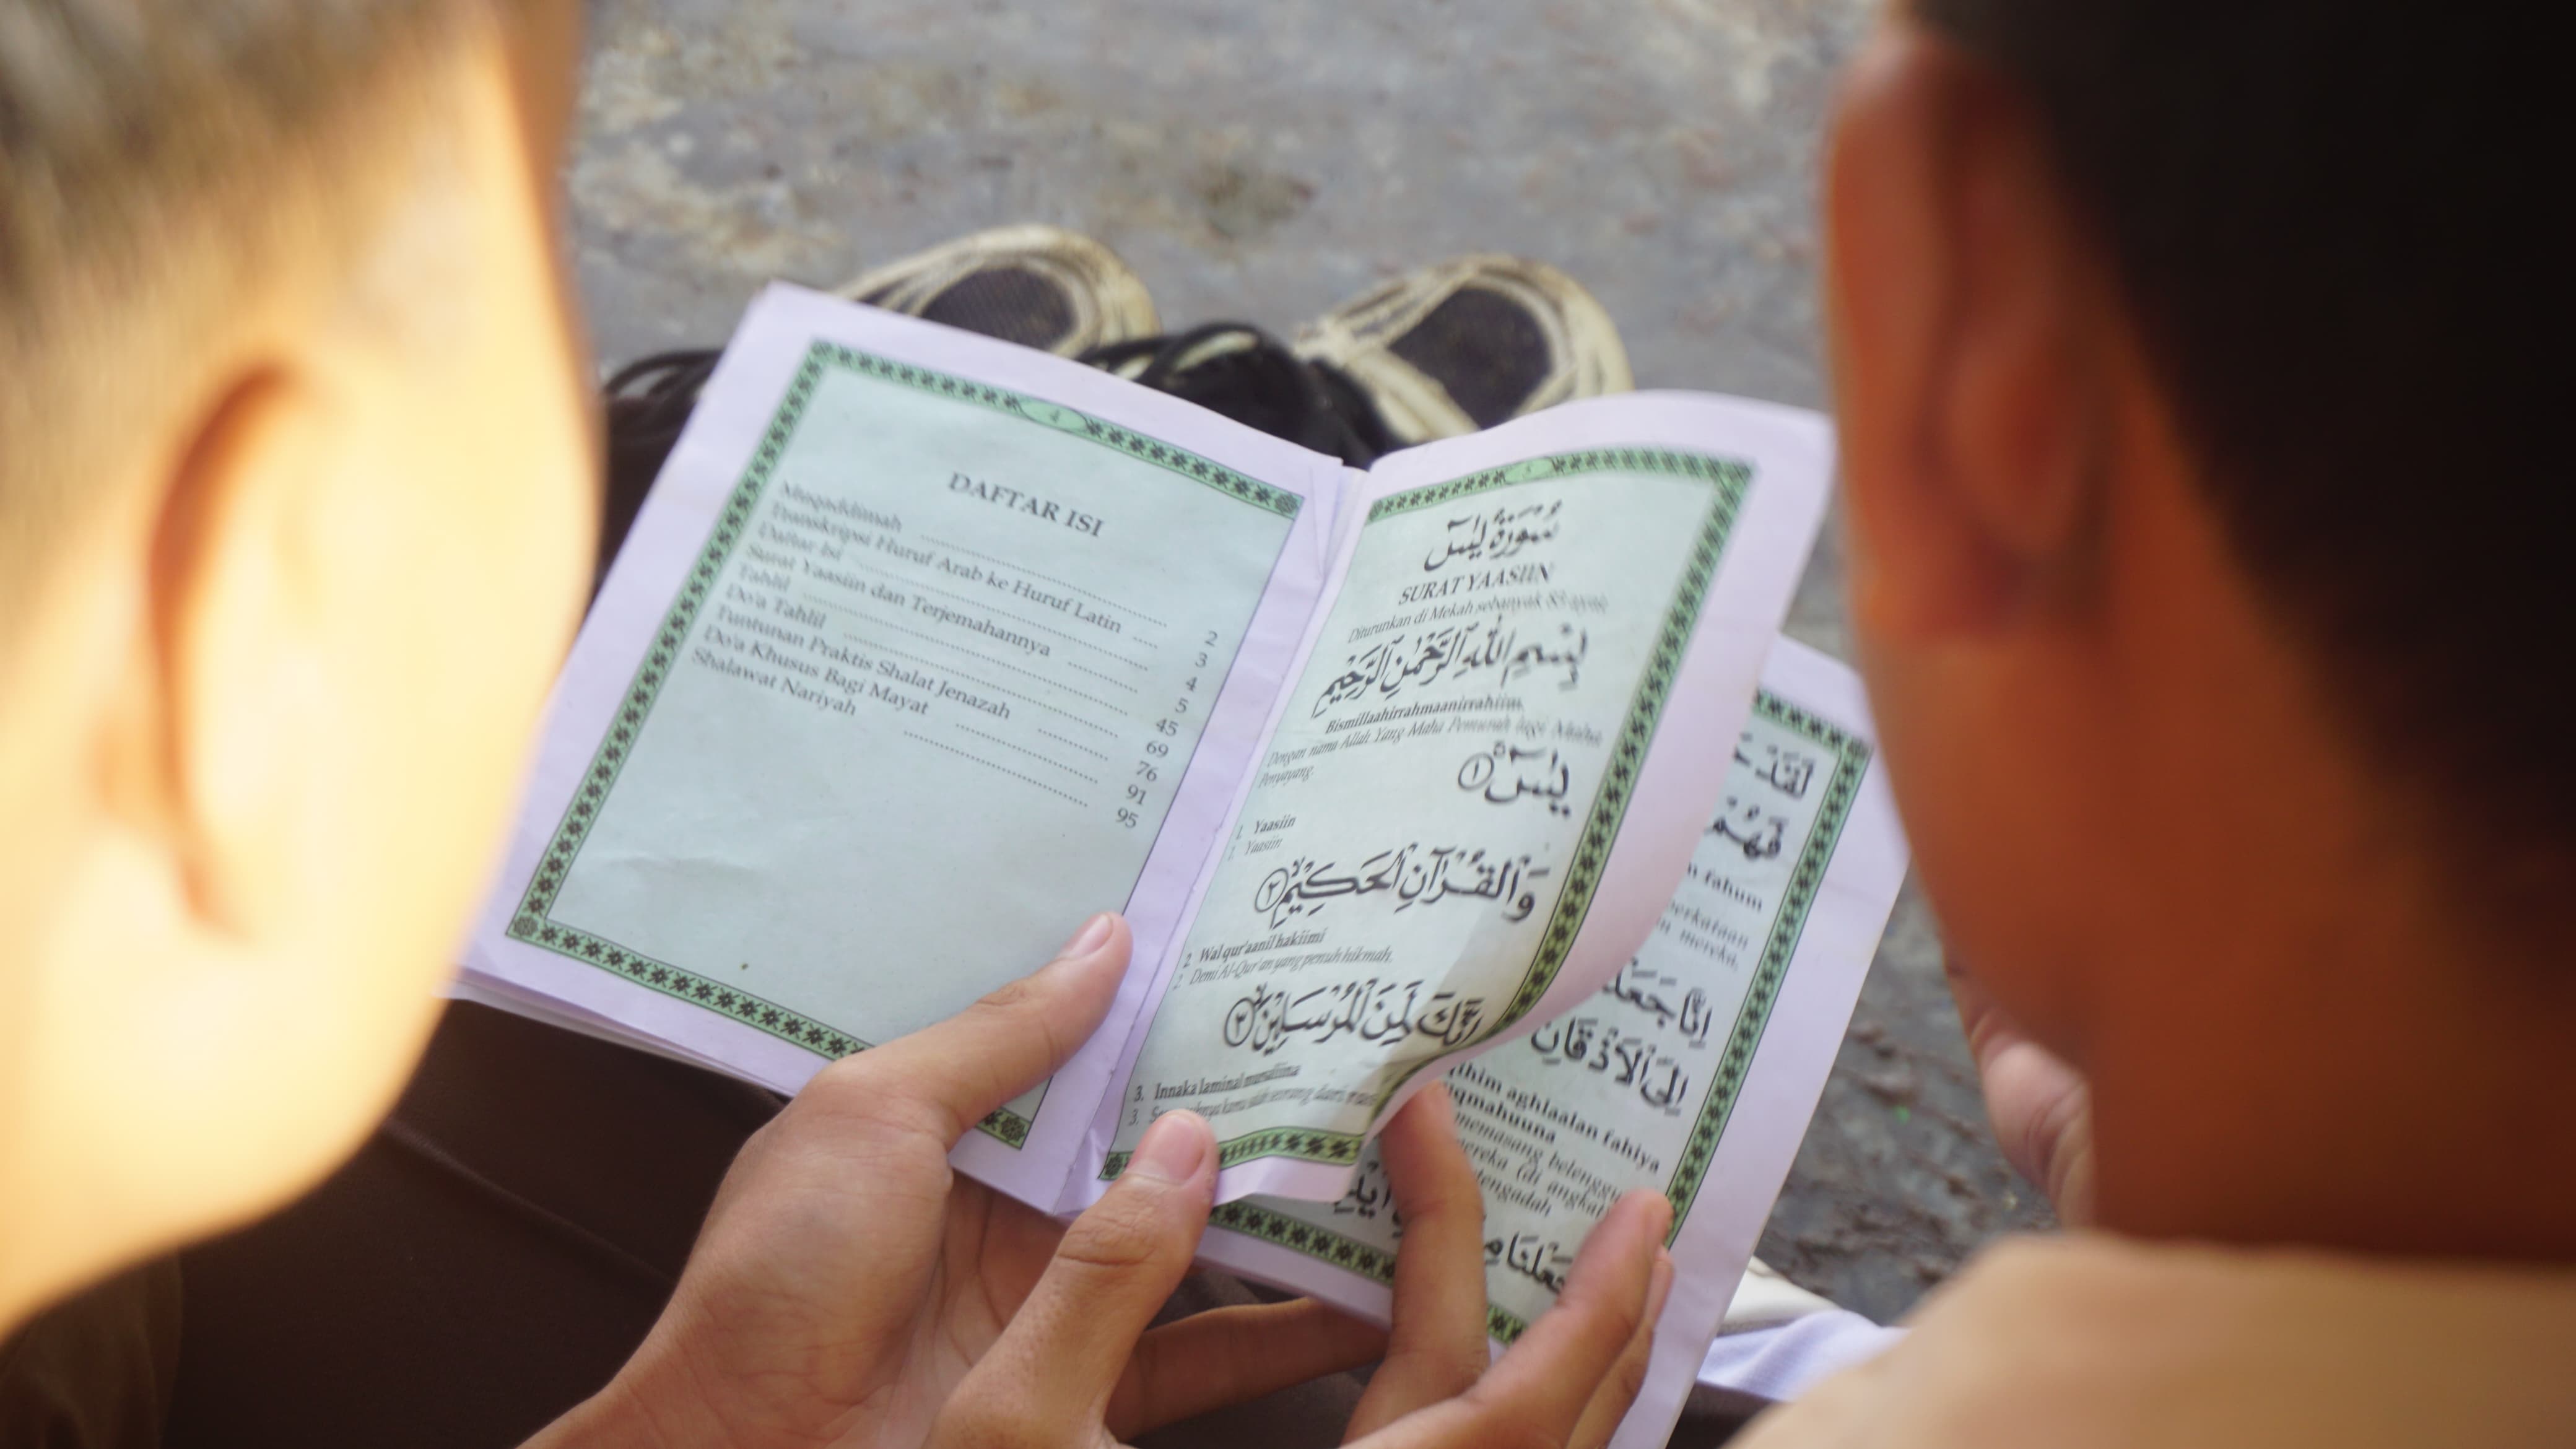 4
DAFTAR ISI
Muqaddimah .......... 2
Transkripsi Huruf Arab ke Huruf Latin .......... 3
Daftar Isi .......... 4
Surat Yaasiin dan Terjemahannya .......... 5
Tahlil .......... 45
Do'a Tahlil .......... 69
Tuntunan Praktis Shalat Jenazah .......... 76
Do'a Khusus Bagi Mayat .......... 91
Shalawat Nariyah .......... 95
سُوْرَةُ يٰسٓ
SURAT YAASIIN
Diturunkan di Mekah sebanyak 83 ayat
بِسْمِ اللّٰهِ الرَّحْمٰنِ الرَّحِيْمِ
Bismillaahirrahmaanirrahiim.
Dengan nama Allah Yang Maha Pemurah lagi Maha
Penyayang.
يٰسٓ ۚ ١
1. Yaasiin
1. Yaasiin
وَالْقُرْآنِ الْحَكِيْمِۙ ٢
2. Wal qur'aanil hakiimi
2. Demi Al-Qur'an yang penuh hikmah.
اِنَّكَ لَمِنَ الْمُرْسَلِيْنَۙ ٣
3. Innaka laminal mursaliina
3. kamu salah seorang dari
لَقَدْ
فَهُمْ
fahum
perkataan
mereka.
اِنَّا جَعَلْنَا
اِلَى الْاَذْقَانِ
aghlaalan fahiya
muqmahuuna
memasang belenggu
mereka (di angkat
tengadah